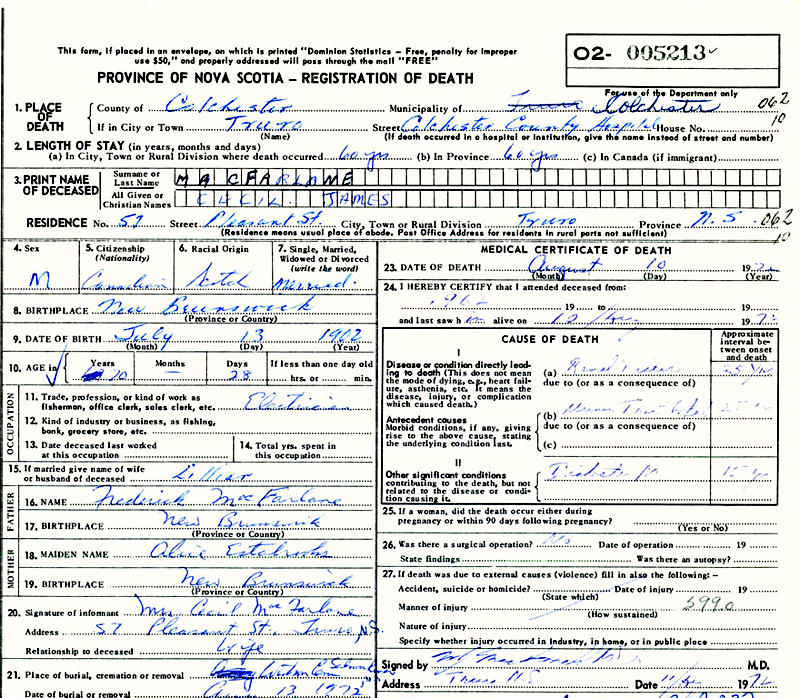 This form, if placed in an envelope, on which is printed "Dominion Statistics – Free, penalty for improper
use $50," and properly addressed will pass through the mail "FREE"
PROVINCE OF NOVA SCOTIA – REGISTRATION OF DEATH
O2- 005213
For use of the Department only
1. PLACE OF DEATH
County of Colchester Municipality of Truro Colchester 062
If in City or Town Truro Street Colchester County Hospital House No. 10
(Name) (If death occurred in a hospital or institution, give the name instead of street and number)
2. LENGTH OF STAY (in years, months and days)
(a) In City, Town or Rural Division where death occurred 60 yrs (b) In Province 60 yrs (c) In Canada (if immigrant)
3. PRINT NAME OF DECEASED
Surname or Last Name MACFARLANE
All Given or Christian Names CECIL JAMES
RESIDENCE No. 57 Street Pleasant St. City, Town or Rural Division Truro Province N.S. 062
(Residence means usual place of abode. Post Office Address for residents in rural parts not sufficient) 10
4. Sex
M
5. Citizenship
(Nationality)
Canadian
6. Racial Origin
Scotch
7. Single, Married,
Widowed or Divorced
(write the word)
Married
8. BIRTHPLACE New Brunswick
(Province or Country)
9. DATE OF BIRTH July 13 1902
(Month) (Day) (Year)
10. AGE in
Years
70
Months
–
Days
28
If less than one day old
hrs. or min.
OCCUPATION
11. Trade, profession or kind of work as
fishermon, office clerk, soles clerk, etc. Electrician
12. Kind of industry or business, as fishing,
bank, grocery store, etc.
13. Date deceased last worked
at this occupation
14. Total yrs. spent in
this occupation
15. If married give name of wife
or husband of deceased Lillian
FATHER
16. NAME Frederick MacFarlane
17. BIRTHPLACE New Brunswick
(Province or Country)
MOTHER
18. MAIDEN NAME Alice Estabrooks
19. BIRTHPLACE New Brunswick
(Province or Country)
20. Signature of informant Mrs Cecil MacFarlane
Address 57 Pleasant St. Truro, N.S.
Relationship to deceased Wife
21. Place of burial, cremation or removal
Date of burial or removal 13 1972
MEDICAL CERTIFICATE OF DEATH
23. DATE OF DEATH August 10 1972
(Month) (Day) (Year)
24. I HEREBY CERTIFY that I attended deceased from:
1962 19 to 19
and last saw him alive on 10 Aug 1972
CAUSE OF DEATH
Approximate
interval be-
tween onset
and death
I
Disease or condition directly lead-
ing to death (This does not mean
the mode of dying, e.g., heart fail-
ure, asthenia, etc. It means the
disease, injury, or complication
which caused death.)
(a)
due to (or as a consequence of)
Antecedent causes
Morbid conditions, if any, giving
rise to the above cause, stating
the underlying condition last.
(b)
due to (or as a consequence of)
(c)
II
Other significant conditions
contributing to the death, but not
related to the disease or condi-
tion causing it.
Diabetes M 15 yrs
25. If a woman, did the death occur either during
pregnancy or within 90 days following pregnancy?
(Yes or No)
26. Was there a surgical operation? No Date of operation 19
State findings Was there an autopsy?
27. If death was due to external causes (violence) fill in also the following: –
Accident, suicide or homicide? Date of injury 19
(State which)
Manner of injury 599.0
(How sustained)
Nature of injury
Specify whether injury occurred in Industry, in home, or in public place
Signed by M.D.
Address Truro N.S. Date 11 Aug 1972